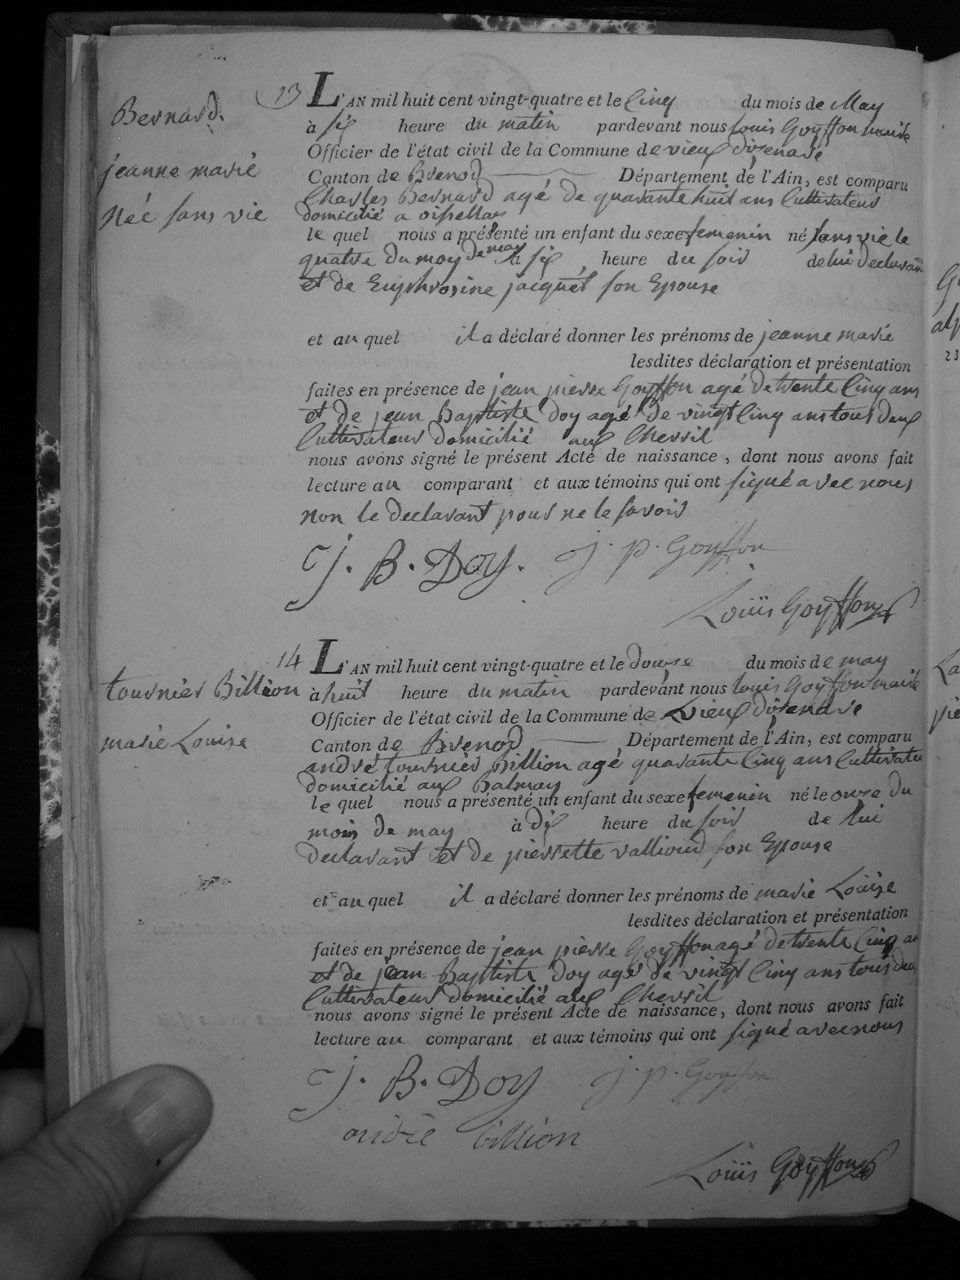 13
Bernard.
jeanne marie
Née sans vie
L'AN mil huit cent vingt-quatre et le Cinq du mois de May
à six heure du matin pardevant nous Louis Goyffon maire
Officier de l'état civil de la Commune de vieux disenave
Canton de Brenod Département de l'Ain, est comparu
Charles Bernard agé de quarante huit ans Cultivateur
domicilié a
le quel nous a présenté un enfant du sexe femenin né sans vie le
quatre du moy de may à six heure du soir de lui declarant
et de Euphrosine jacquet son Epouse
et au quel il a déclaré donner les prénoms de jeanne marie
lesdites déclaration et présentation
faites en présence de jean pierre Goyffon agé de trente Cinq ans
et de jean Baptiste Doy agé de vingt Cinq ans tous deux
Cultivateur domicilié aux Chevril
nous avons signé le présent Acte de naissance, dont nous avons fait
lecture au comparant et aux témoins qui ont signé avec nous
non le declarant pour ne le savoir
J. B. Doy. j. p. Goyffon
Louïs Goyffon
14
tournier Billion
marie Louise
L'AN mil huit cent vingt-quatre et le douze du mois de may
à huit heure du matin pardevant nous Louis Goyffon maire
Officier de l'état civil de la Commune de vieux disenave
Canton de Brenod Département de l'Ain, est comparu
andré tournier Billion agé quarante Cinq ans Cultivateu
domicilié aux Balmay
le quel nous a présenté un enfant du sexe femenin né le onze du
mois de may à dix heure du soir de lui
declarant et de pierrette vallioud son Epouse
et au quel il a déclaré donner les prénoms de marie Louise
lesdites déclaration et présentation
faites en présence de jean pierre Goyffon agé de trente Cinq an
et de jean Baptiste Doy agé de vingt Cinq ans tous deux
Cultivateur domicilié aux Chevril
nous avons signé le présent Acte de naissance, dont nous avons fait
lecture au comparant et aux témoins qui ont signé avec nous
J. B. Doy j. p. Goyffon
andré billion
Louïs Goyffon